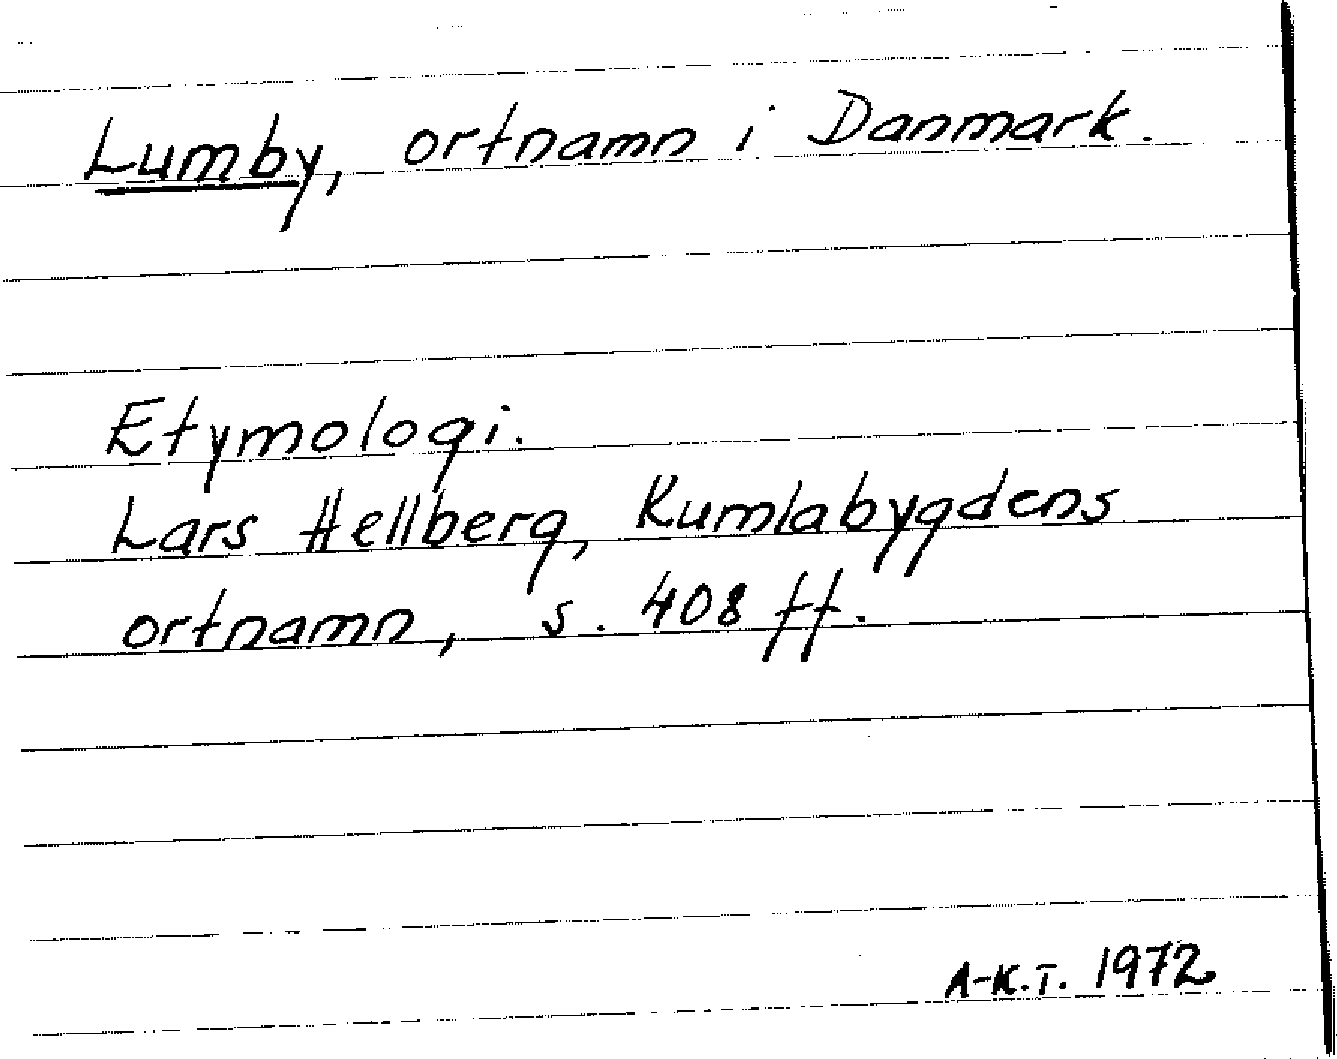 Lumby, ortnamn i Danmark.
Etymologi.
Lars Hellberg, Kumlabygdens
ortnamn, s. 408 ff.
A-K.T. 1972